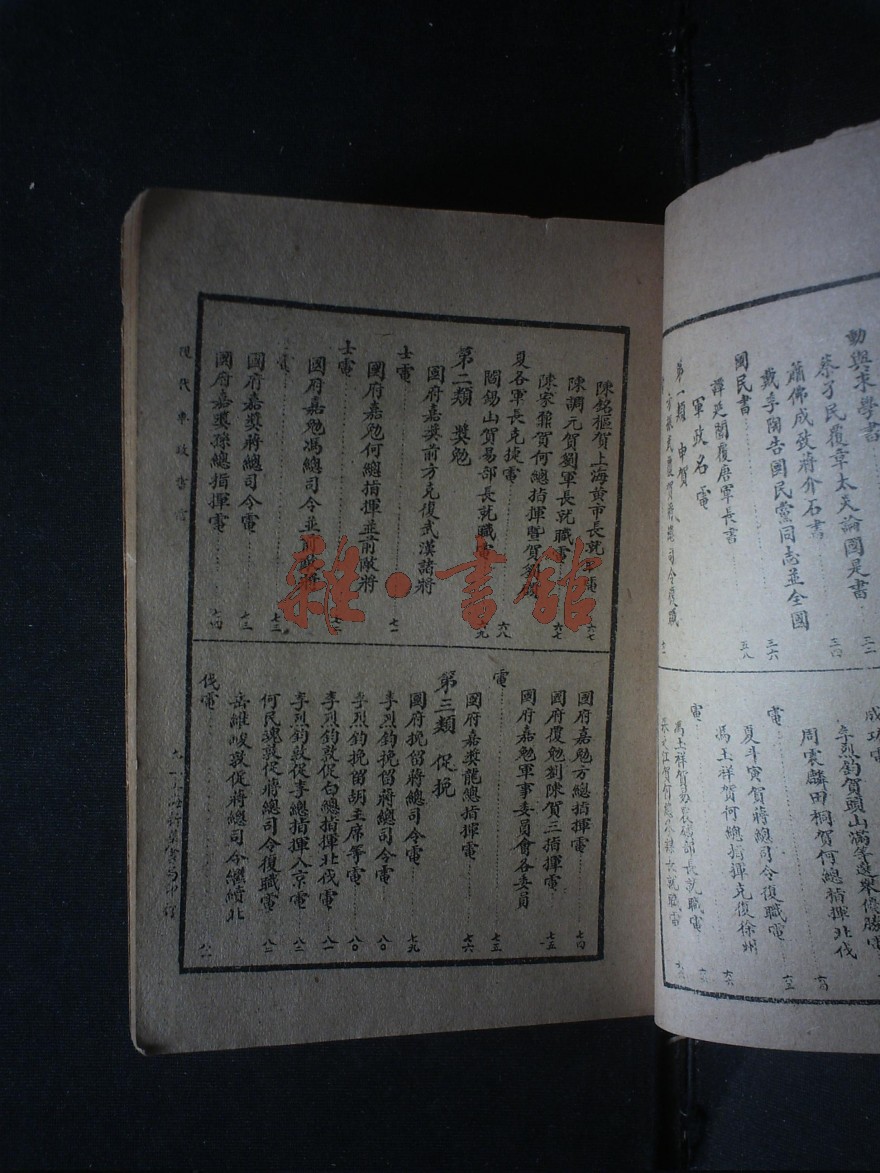 動與宋學書
蔡孑民覆章太炎論國是書
三二
蕭佛成致蔣介石書
三四
戴季陶告國民黨同志並全國
國民書
三六
譚延闓覆唐軍長書
五八
軍政名電
第一類 申賀
成功電
李烈鈞賀頭山滿等選舉優勝電
周震麟田桐賀何總指揮北伐
電
夏斗寅賀蔣總司令復職電
馮玉祥賀何總指揮克復徐州
電
陳銘樞賀上海黃市長就職電
六七
陳調元賀劉軍長就職電
六七
陳家鼐賀何總指揮暨賀
夏各軍長克捷電
六八
閻錫山賀易部長就職電
六九
第二類 獎勉
國府嘉獎前方克復武漢諸將
士電
七一
國府嘉勉何總指揮並前敵將
士電
七二
國府嘉勉馮總司令並前敵將
電
七三
國府嘉獎蔣總司令電
七三
國府嘉獎孫總指揮電
七四
國府嘉勉方總指揮電
七四
國府復勉劉陳賀三指揮電
七五
國府嘉勉軍事委員會各委員
電
七五
國府嘉獎龍總指揮電
七六
第三類 促挽
國府挽留蔣總司令電
七九
李烈鈞挽留蔣總司令電
八〇
李烈鈞挽留胡主席等電
八〇
李烈鈞敦促白總指揮北伐電
八一
李烈鈞敦促李總指揮入京電
八一
何民魂敦促蔣總司令復職電
八二
岳維峻敦促蔣總司令繼續北
伐電
八二
現代軍政書官
雜·書館